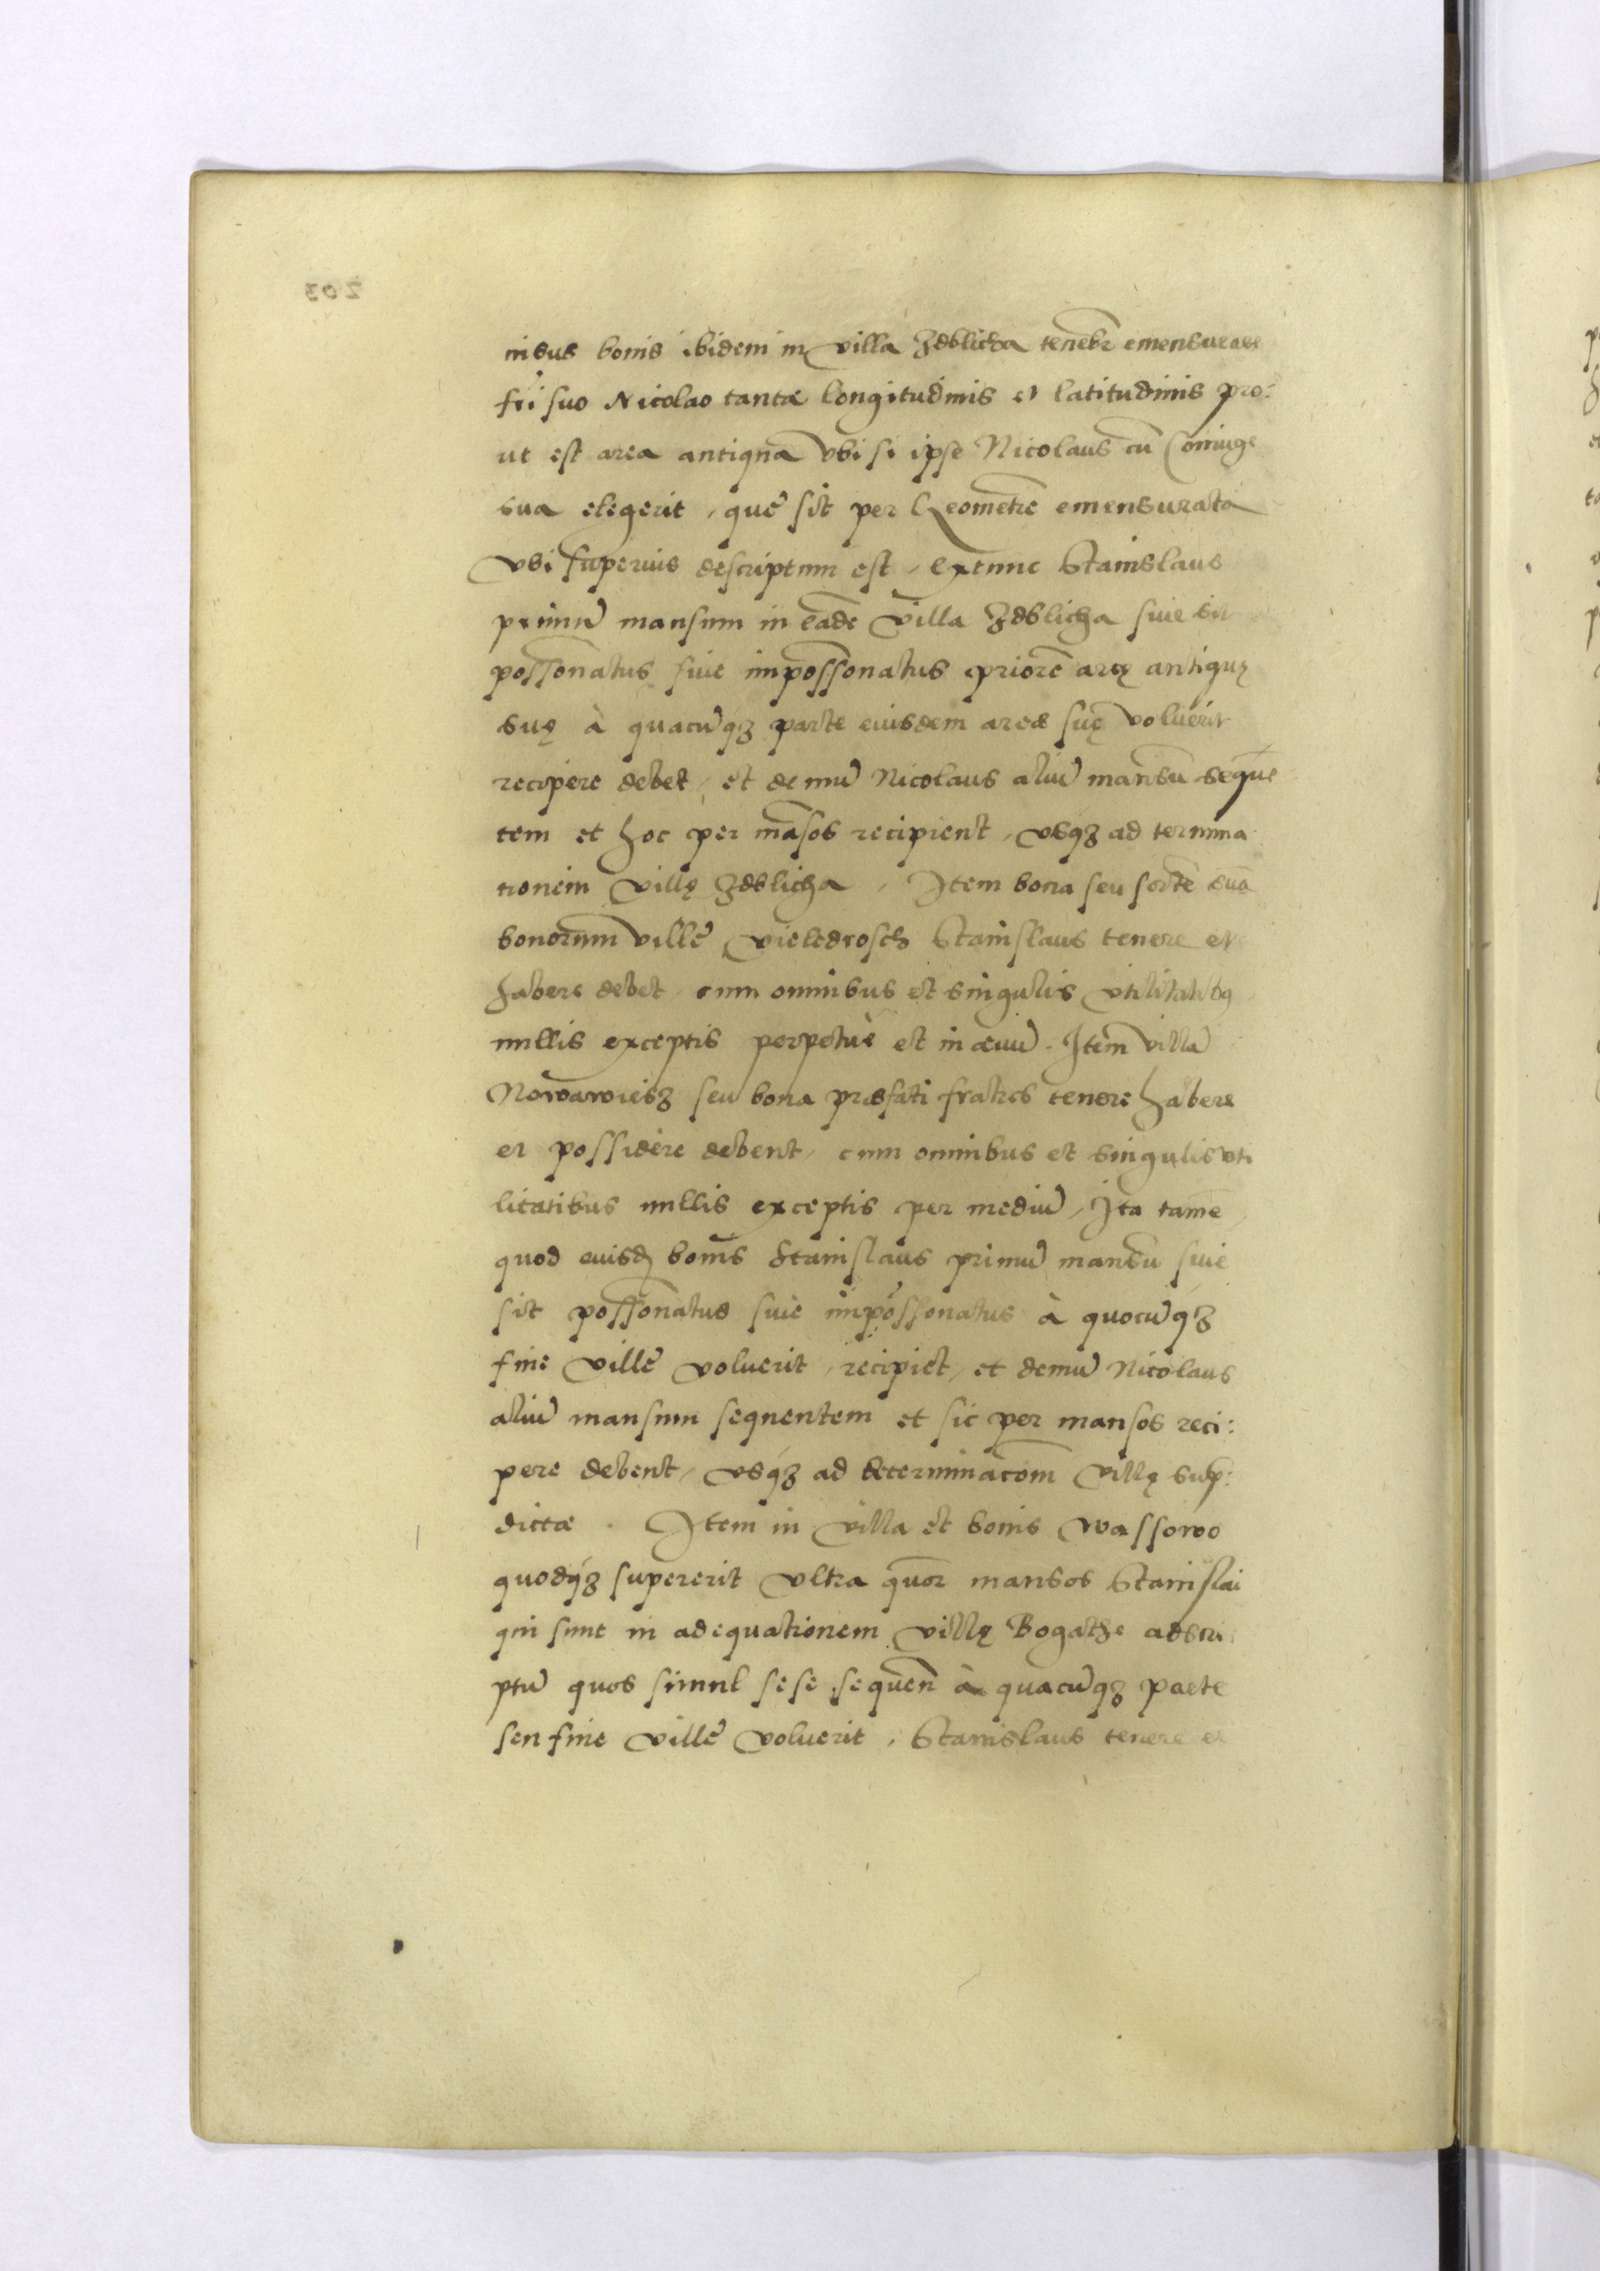 nisus bonis ibidem in villa Zdblicha tenebr̄ emensurare
fr̄i suo Nicolao tantæ longitudinis et latitudinis pro:
ut est area antiqua vbi si ipse Nicolaus cū Coniuge
sua elegerit, quę sit per Geometrē emensurata
vbi superius descriptum est, extunc Stanislaus
primū mansum in eadē villa Zdblicha siue sit
possōnatus siue impossōnatus apriorē aręę antiquę
suę à quacūqz parte eiusdem areæ suę voluerit
recipere debet, et demū Nicolaus aliū mansū sequē
tem et hoc per māsos recipient, vsqz ad termina
tionem villę Zdblicha, Item bona seu sortē suā
bonorum villę vieledrosch Stanislaus tenere et
habere debet cum omnibus et singulis vtilitatibq
nullis exceptis perpetuè et in æuū. Item villā
Nowawiesz seu bona præfati fratres tenere habere
et possidere debent, cum omnibus et singulis vti
litatibus nullis exceptis per mediū, Ita tamē
quod euisd bonis Stanislaus primū mansū siue
sit possōnatus siue impossonatus à quocūqz
fine villę voluerit, recipiet, et demū Nicolaus
aliū mansum sequentem et sic per mansos reci:
pere debent, vsqz ad determinac̄om villę sup:
dictæ. Item in villa et bonis Wassowo
quodqz supererit vltra quor̄ mansos Stanislai
qui sunt in adequationem villę Bogathe adscri
ptū quos simul sese sequen̄ à quacūqz parte
seu fine villę voluerit, Stanislaus tenere et